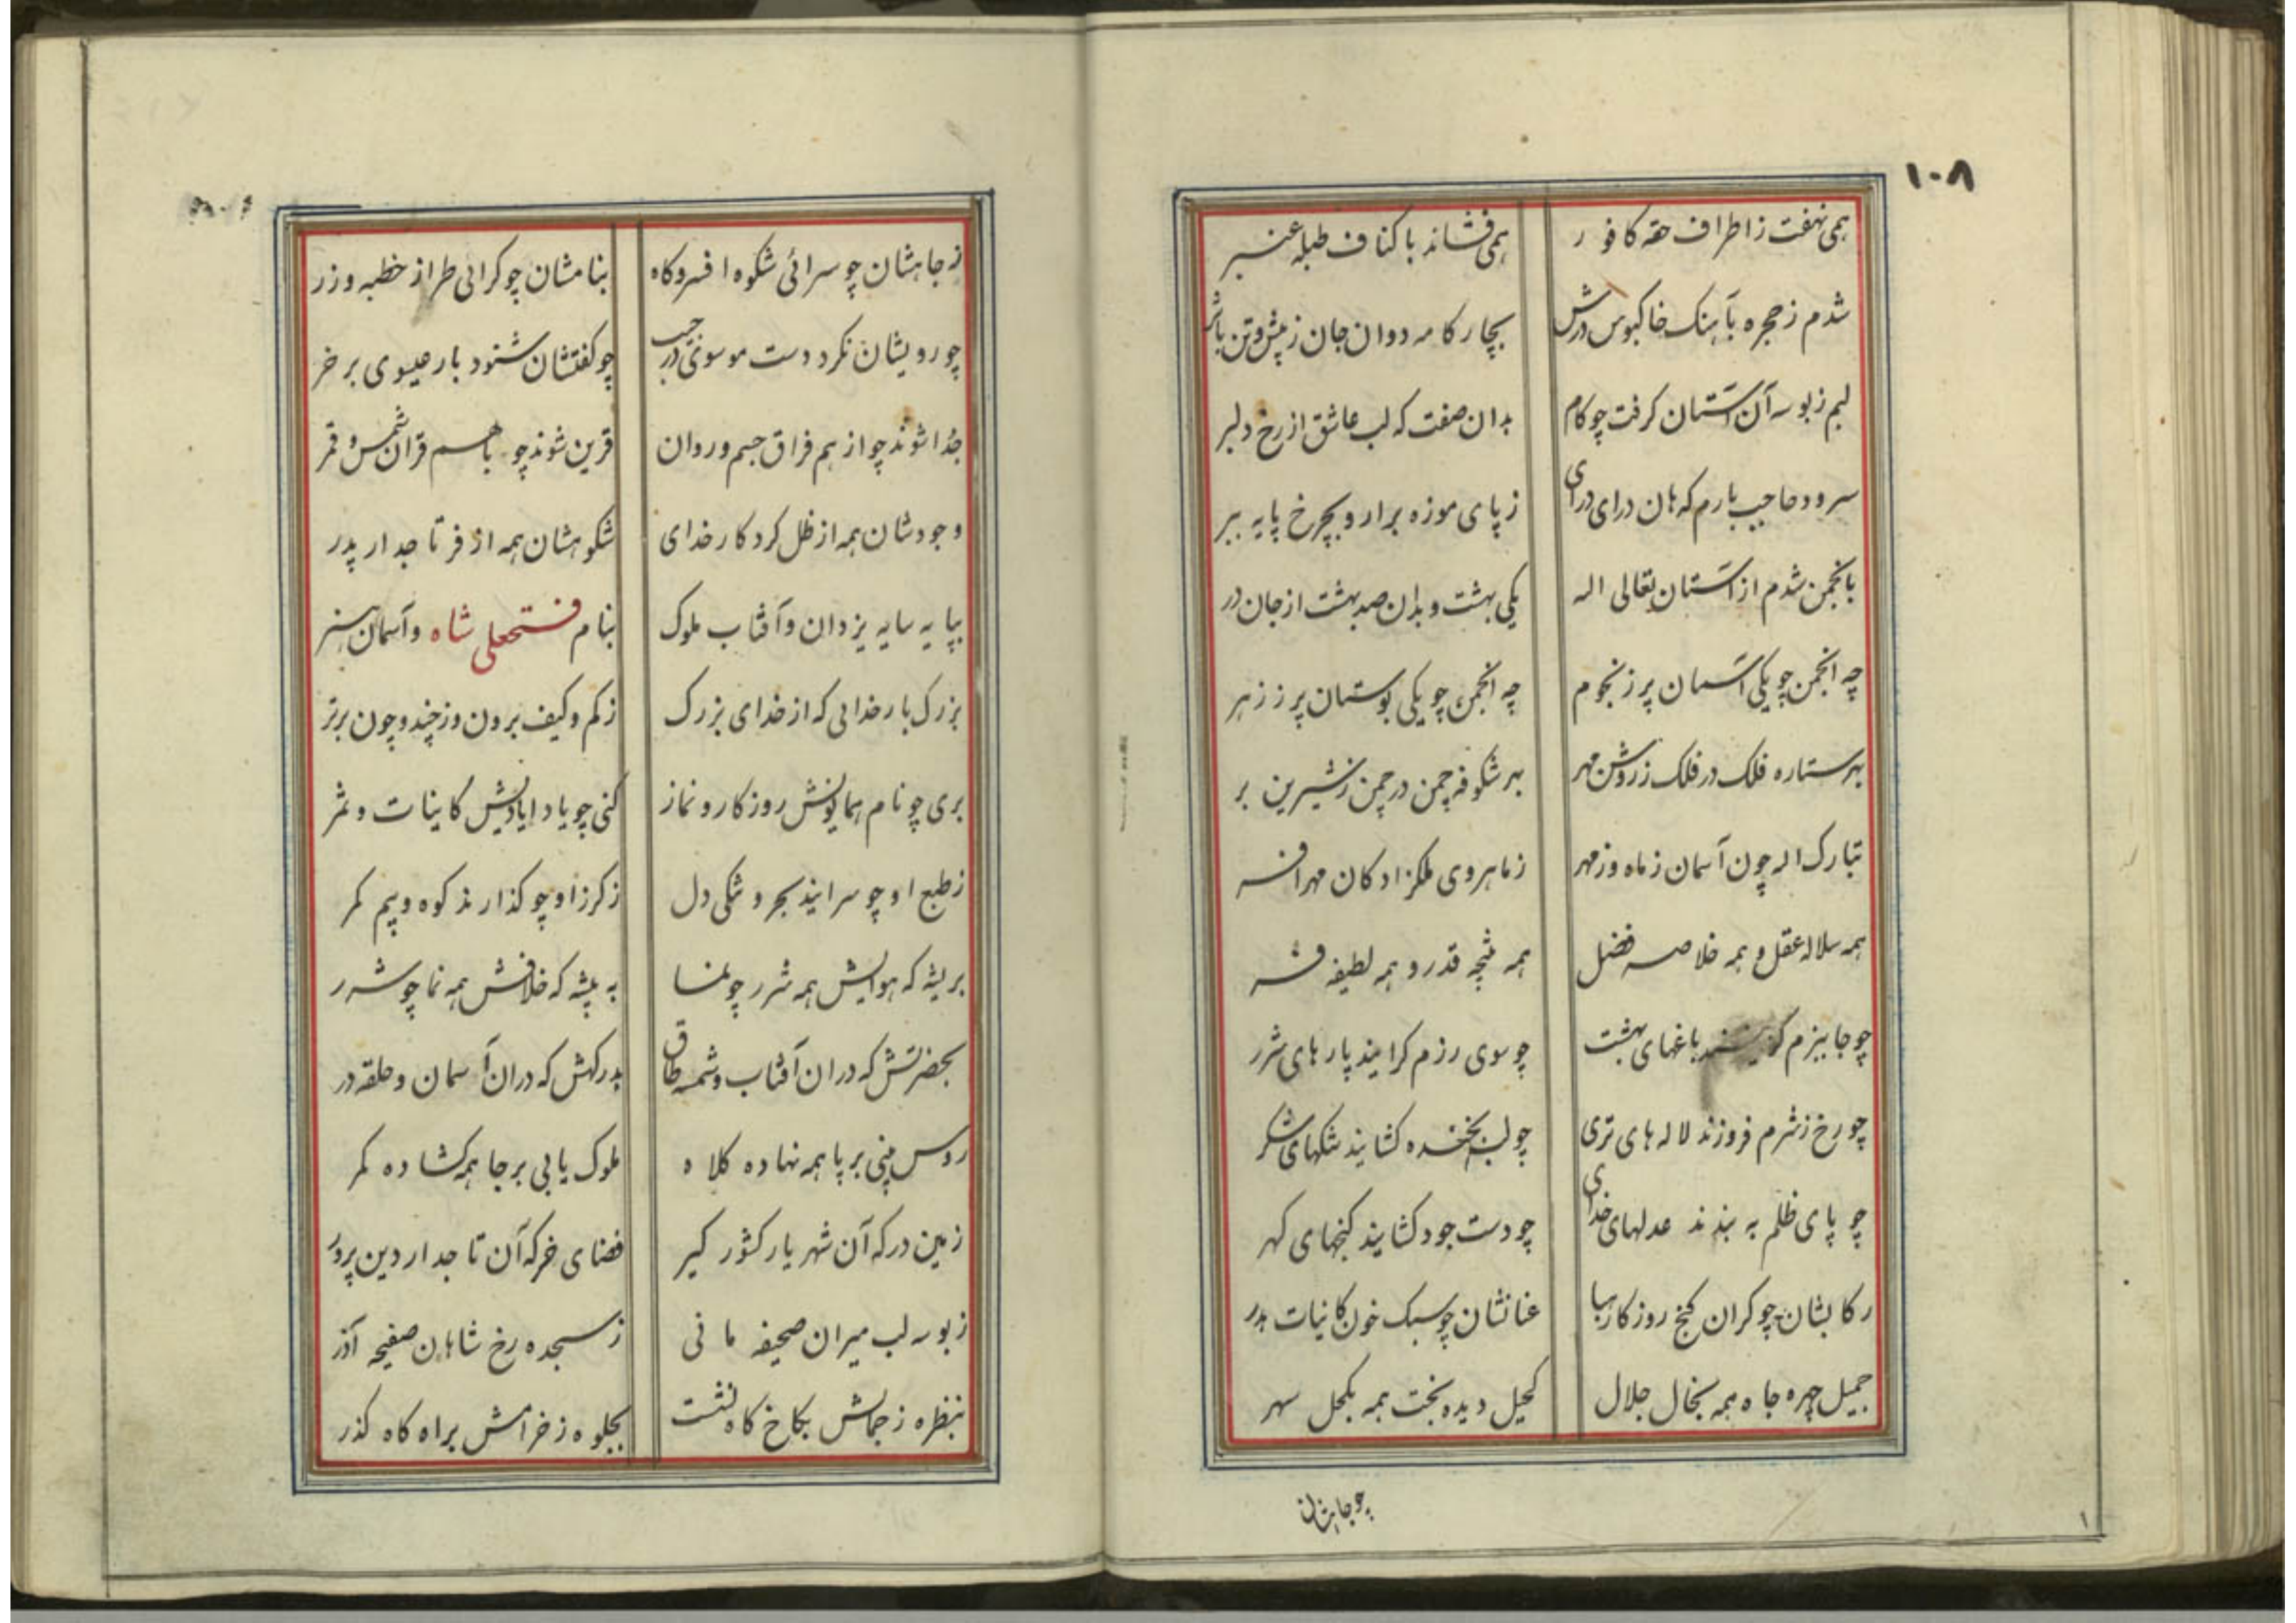 ١٠٨
همی نهفت ز اطراف حقه کافور همی فشاند باکناف طبله عنبر
شدم ز حجره بآهنک خاکبوس درش بچار کامه دوان جان ز پیش و تن باثر
لبم ز بوسه آن آستان کرفت چو کام بدان صفت که لب عاشق از رخ دلبر
سرود حاجب بارم که هان درای درای ز پای موزه برار و بچرخ پایه ببر
بانجمن شدم از آستان تعالی اله یکی بهشت و بدان صد بهشت از جان در
چه انجمن چو یکی آسمان پر ز نجوم چه انجمن چو یکی بوستان پر ز زهر
بهر ستاره فلک در فلک ز روشن مهر بهر شکوفه چمن در چمن ز شیرین بر
تبارک اله چون آسمان ز ماه و ز مهر ز ماهروی ملکزادکان مهر افسر
همه سلاله عقل و همه خلاصه فضل همه نتیجه قدر و همه لطیفه فر
چو جا ببزم باغهای بهشت چو سوی رزم کرایند پارهای شرر
چو رخ ز شرم فروزند لاله های تری چو لب بخنده کشایند تنکهای شکر
چو پای ظلم به بندند عدلهای خدای چو دست جود کشایند کنجهای کهر
رکابشان چو کران کنج روزکار هبا عنانشان چو سبک خون کاینات هدر
جمیل چهره جاه همه بخال جلال کحیل دیده بخت همه بکحل سهر
چو جاهشان
ز جاهشان چو سرائی شکوه افسر و کاه بنامشان چو کرائی طراز خطبه و زر
چو رویشان نکرد دست موسوی در جیب چو کفتشان شنود بار عیسوی بر خر
جدا شوند چو از هم فراق جسم و روان قرین شوند چو با هم قران شمس و قمر
وجودشان همه از ظل کردکار خدای شکوهشان همه از فر تاجدار پدر
بپایه سایه یزدان و آفتاب ملوک بنام فتحعلی شاه و آسمان هنر
بزرک بار خدایی که از خدای بزرک ز کم و کیف برون و ز چند و چون برتر
بری چو نام همایونش روزکار و نماز کنی چو یاد ایادیش کاینات و ثمر
ز طبع او چو سرایند بحر و تنکی دل ز کرز او چو کذارند کوه و بیم کمر
بریشه که هوایش همه شرر چو نما به بیشه که خلافش همه نما چو شرر
بحضرتش که دران آفتاب و شمسه طاق بدرکهش که دران آسمان و حلقه در
روس بینی بر پا همه نهاده کلاه ملوک یابی بر جا همه کشاده کمر
زمین درکه آن شهریار کشور کیر فضای خرکه آن تاجدار دین پرور
ز بوسه لب میران صحیفه مانی ز سجده رخ شاهان صفیحه آذر
بنظره ز جمالش بکاخ کاه نشست بجلوه ز خرامش براه کاه کذر